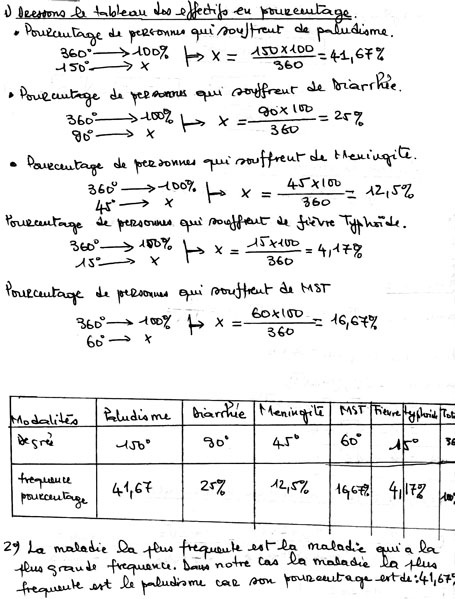 1) Dressons le tableau des effectifs en pourcentage.
• Pourcentage de personnes qui souffrent de paludisme.
360° → 100%
150° → x
↦ x = 150x100/360 = 41,67%
• Pourcentage de personnes qui souffrent de Diarrhée.
360° → 100%
90° → x
↦ x = 90x100/360 = 25%
• Pourcentage de personnes qui souffrent de Meningite.
360° → 100%
45° → x
↦ x = 45x100/360 = 12,5%
Pourcentage de personnes qui souffrent de fièvre Typhoïde.
360° → 100%
15° → x
↦ x = 15x100/360 = 4,17%
Pourcentage de personnes qui souffrent de MST
360° → 100%
60° → x
↦ x = 60x100/360 = 16,67%
Modalités Paludisme Diarrhée Meningite MST Fievre typhoide Tot
Degrés 150° 90° 45° 60° 15° 36
frequence 41,67 25% 12,5% 16,67% 4,17% 100
pourcentage
2°) La maladie la plus frequente est la maladie qui a la
plus grande frequence. Dans notre cas la maladie la plus
frequente est le paludisme car son pourcentage est de: 41,67%